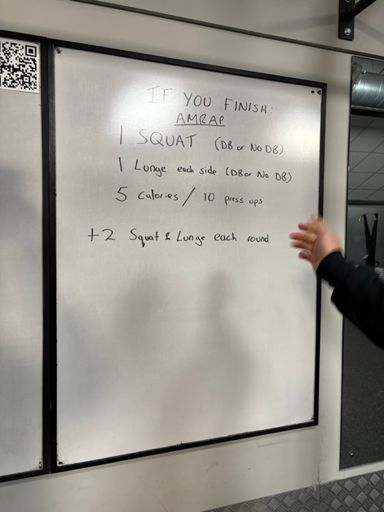 IF YOU FINISH:
AMRAP
1 SQUAT (DB or No DB)
1 Lunge each side (DB or No DB)
5 Calories / 10 press ups
+2 Squat & Lunge each round